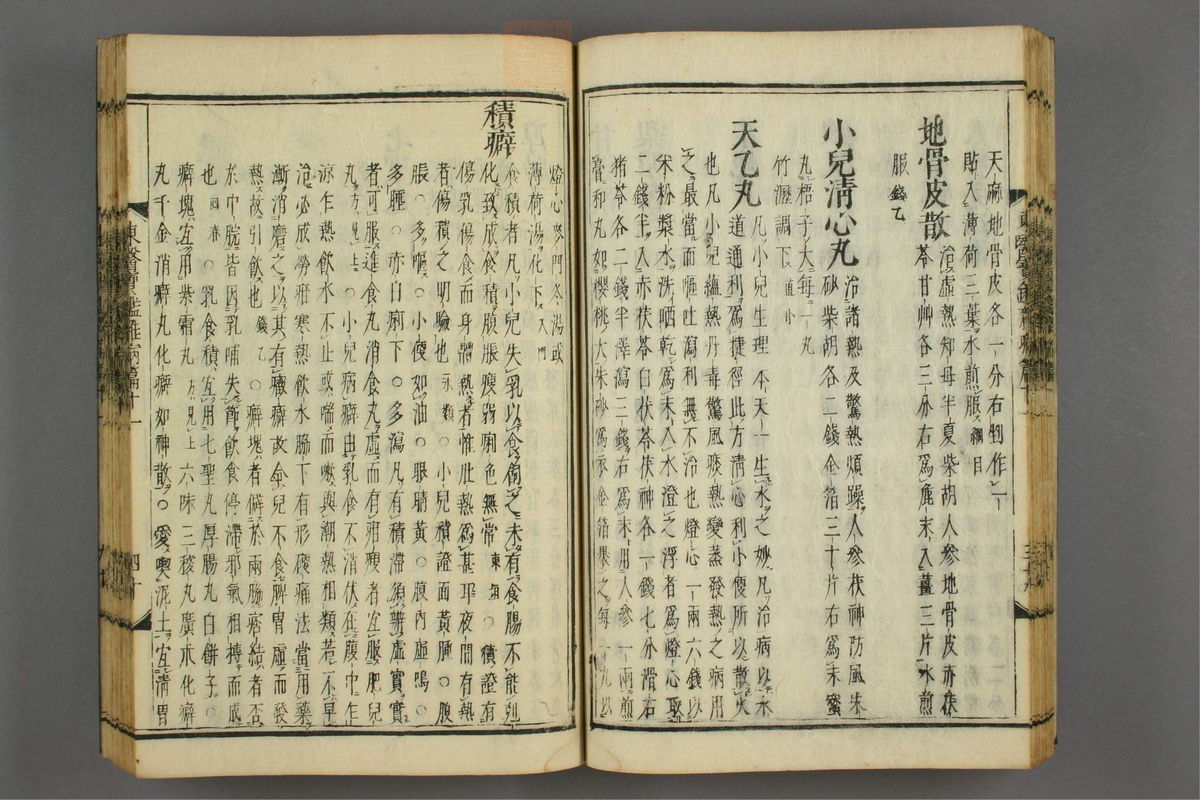 天麻地骨皮各一分右剉作一
貼入薄荷三葉水煎服綱目
地骨皮散治虛熱知母半夏柴胡人參地骨皮赤茯
苓甘艸各三分右爲麁末入薑三片水煎
服錢乙
小兒淸心丸治諸熱及驚熱煩躁人參茯神防風朱
砂柴胡各二錢金箔三十片右爲末蜜
丸梧子大每一丸
竹瀝調下直小
天乙丸凡小兒生理本天一生水之妙凡治病以水
道通通利爲捷徑此方淸心利小便所以散火
也凡小兒蘊熱丹毒驚風痰熱變蒸發熱之病用
之最當而嘔吐瀉利無不治也燈心一兩六錢以
米粉漿水洗晒乾爲末入水澄之浮者爲燈心取
二錢半入赤茯苓白茯苓茯神各一錢七分滑石
猪苓各二錢半澤瀉三錢右爲末用人參一兩煎
膏和丸如櫻桃大朱砂爲衣金箔褁之每一丸以
燈心麥門冬湯或
薄荷湯化下入門
積癖食積者凡小兒失乳以食飼之未有食腸不能剋
化致成食積腹脹瘦弱痢色無常東垣○積證有
傷乳傷食而身體熱者惟肚熱爲甚耳夜間有熱
者傷積之明驗也類聚○小兒積證面黃腫○腹
脹○多嘔○小便如油○眼睛黃○腹內虛鳴○
多睡○赤白痢下○多瀉凡有積滯須辨虛實實
者可服進食丸消食丸虛而有疳瘦者宜服肥兒
丸方見上○小兒病癖由乳食不消伏在腹中乍
凉乍熱飮水不止或喘而嗽與潮熱相類若不早
治必成勞疳寒熱飮水脇下有形硬痛法當用藥
漸消磨之以其有癥癖故令兒不食脾胃虛而發
熱故引飮也錢乙○癖塊者僻於兩脇痞結者否
於中脘皆因乳哺失節飮食停滯邪氣相搏而成
也回春○乳食積宜用七聖丸厚腸丸白餠子○
癖塊宜用紫霜丸方見上六味三稜丸廣朮化癖
丸千金消癖丸化癖如神散○愛喫泥土宜淸胃
東醫寶鑑雜病篇十一
四十